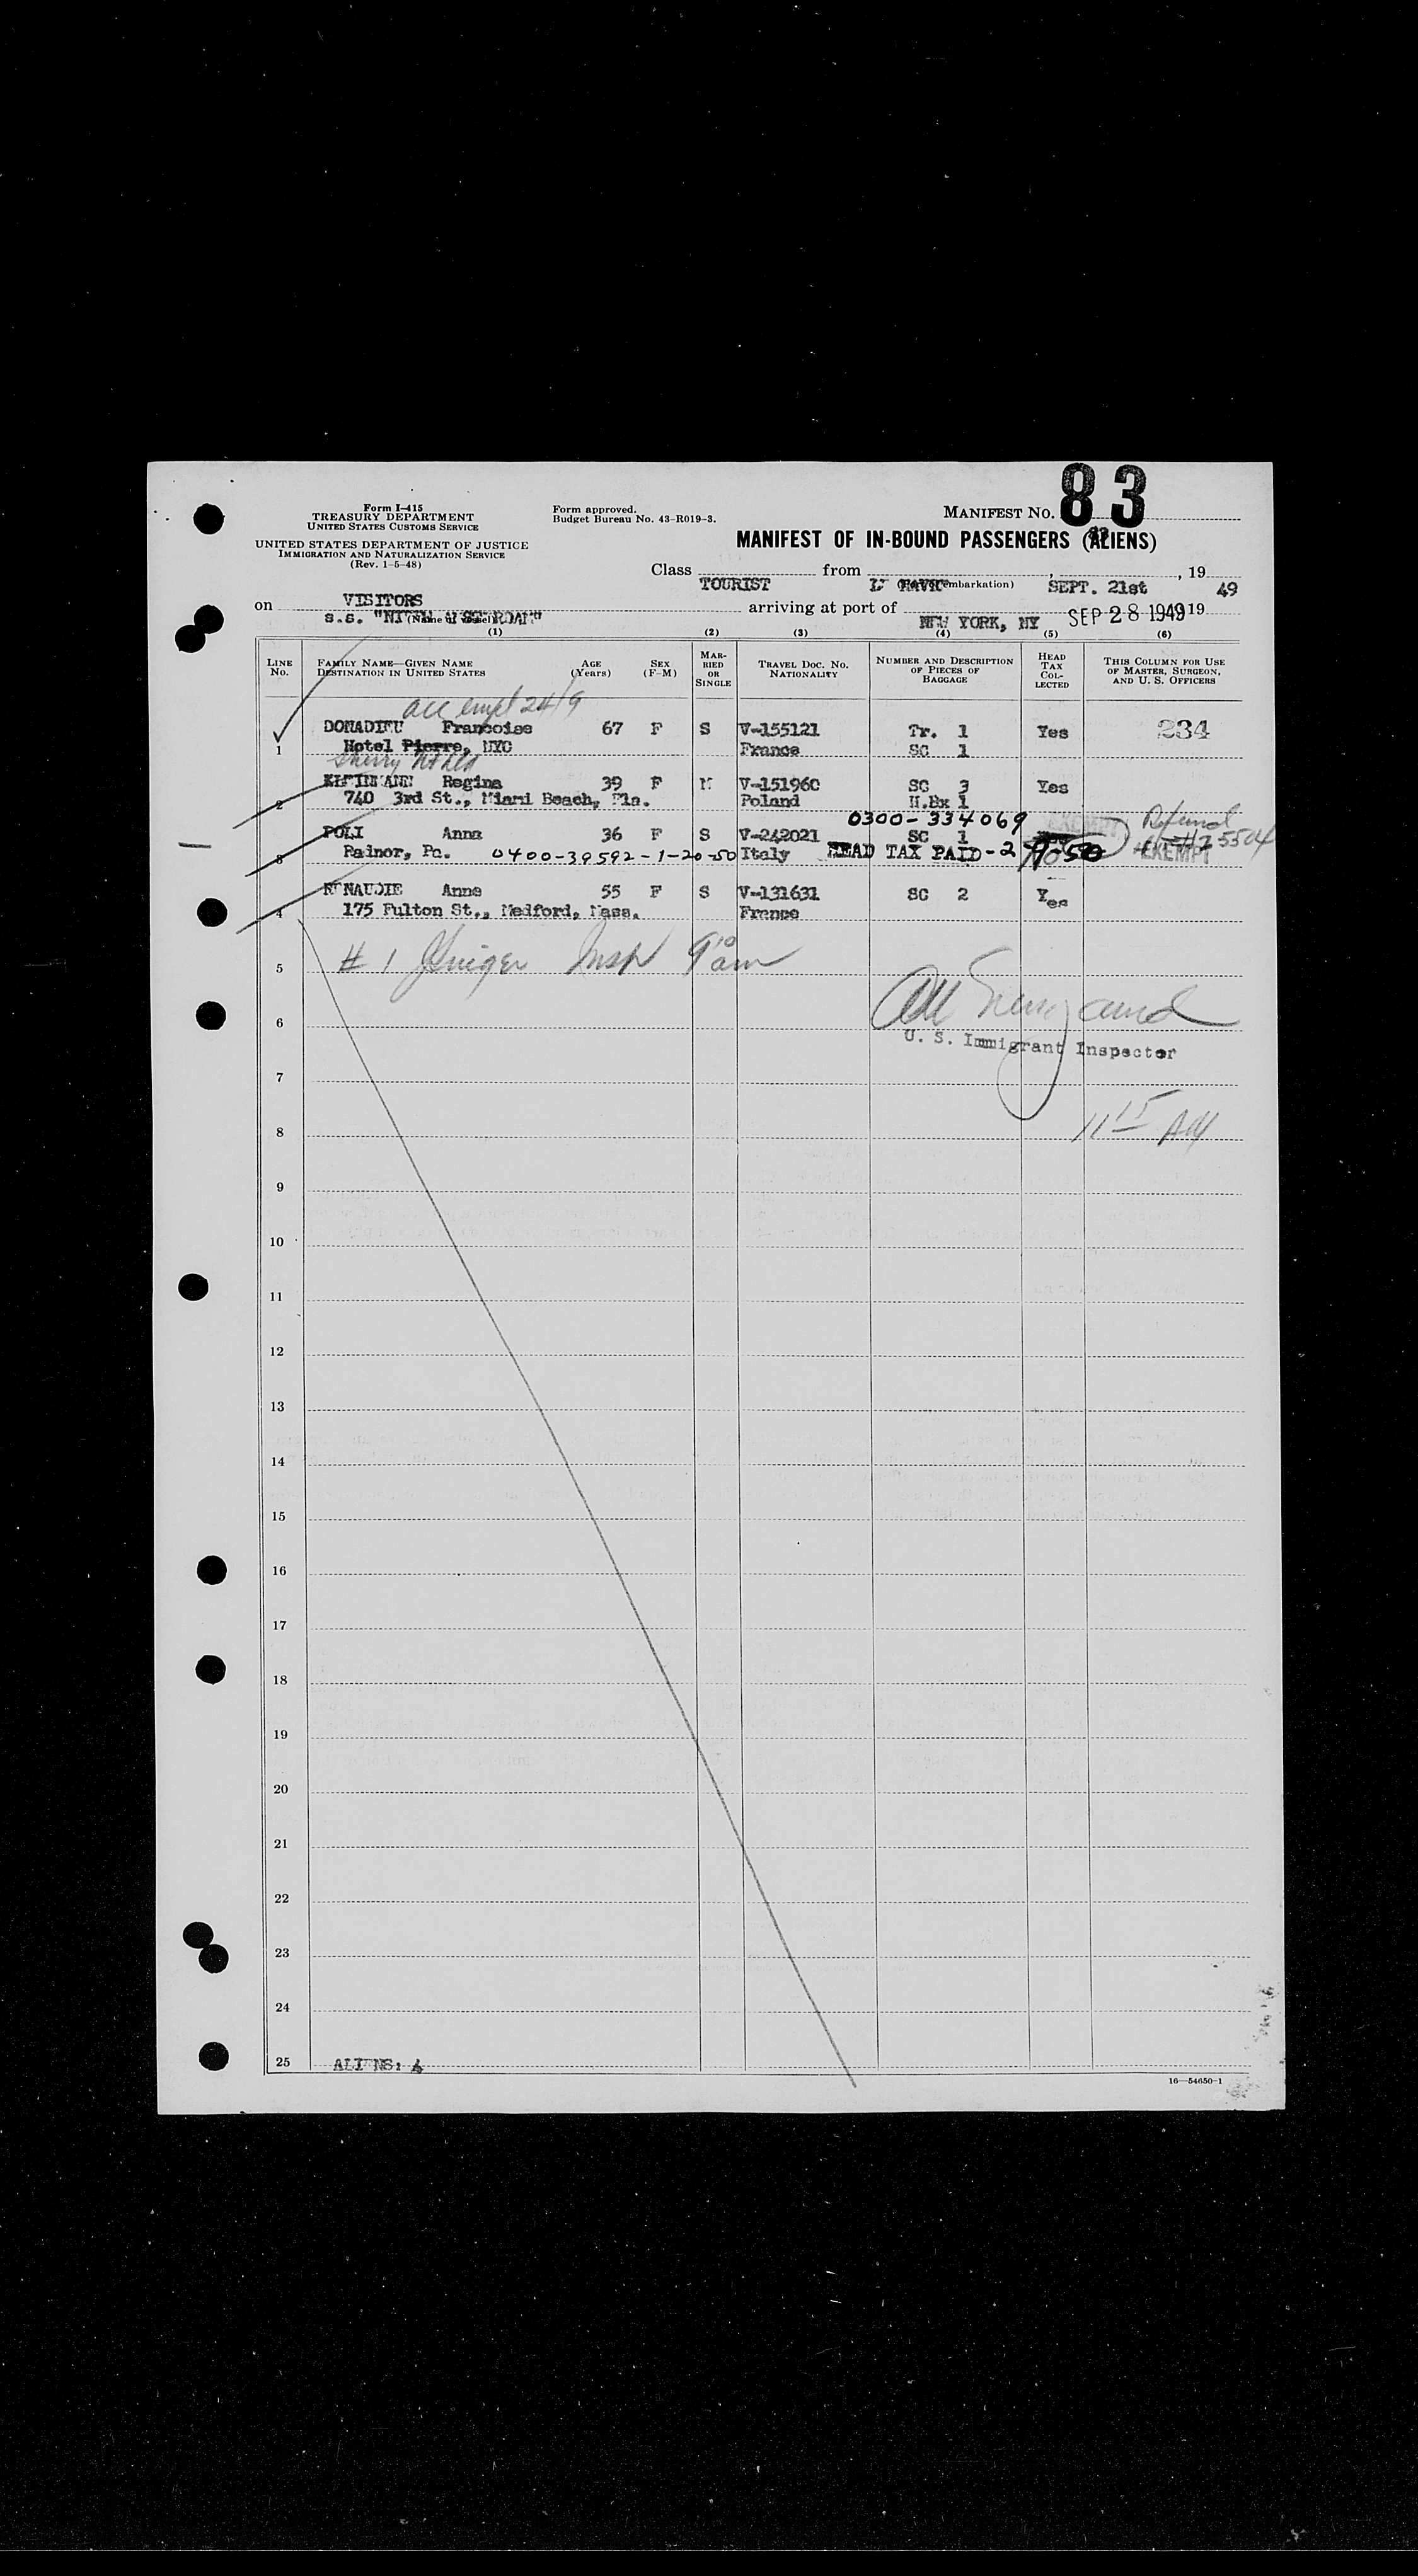 Form I-415
TREASURY DEPARTMENT
UNITED STATES CUSTOMS SERVICE
UNITED STATES DEPARTMENT OF JUSTICE
IMMIGRATION AND NATURALIZATION SERVICE
(Rev. 1-5-48)
Form approved.
Budget Bureau No. 43-R019-3.
MANIFEST NO. 83
MANIFEST OF IN-BOUND PASSENGERS (ALIENS)
Class TOURIST from SEPT. 21st, 19 49
VISITORS
on s.s. arriving at port of NEW YORK, NY SEP 28 1949 19
(1) (2) (3) (4) (5) (6)
LINE No. FAMILY NAME—GIVEN NAME DESTINATION IN UNITED STATES AGE (Years) SEX (F-M) MARRIED OR SINGLE TRAVEL DOC. NO. NATIONALITY NUMBER AND DESCRIPTION OF PIECES OF BAGGAGE HEAD TAX COLLECTED THIS COLUMN FOR USE OF MASTER, SURGEON, AND U. S. OFFICERS
acc empl 24/9
1 DONADIEU Francoise 67 F S V-155121 Tr. 1 Yes 234
Hotel Pierre, NYC France SC 1
2 Regina 39 F M V-151960 SC 3 Yes
740 3rd St., Miami Beach, Fla. Poland H.Bx 1
0300-334069
3 POLI Anna 36 F S V-242021 SC 1 Refund
Painor, Pa. 0400-39592-1-20-50 Italy HEAD TAX PAID-2 EXEMPT
4 RENAUDIE Anne 55 F S V-131631 SC 2 Yes
175 Fulton St., Medford, Mass. France
5 # 1 Insp 9 10 am
6
U. S. Immigrant Inspector
7
11 15 AM
8
9
10
11
12
13
14
15
16
17
18
19
20
21
22
23
24
25 ALIENS: 4
16—54650-1